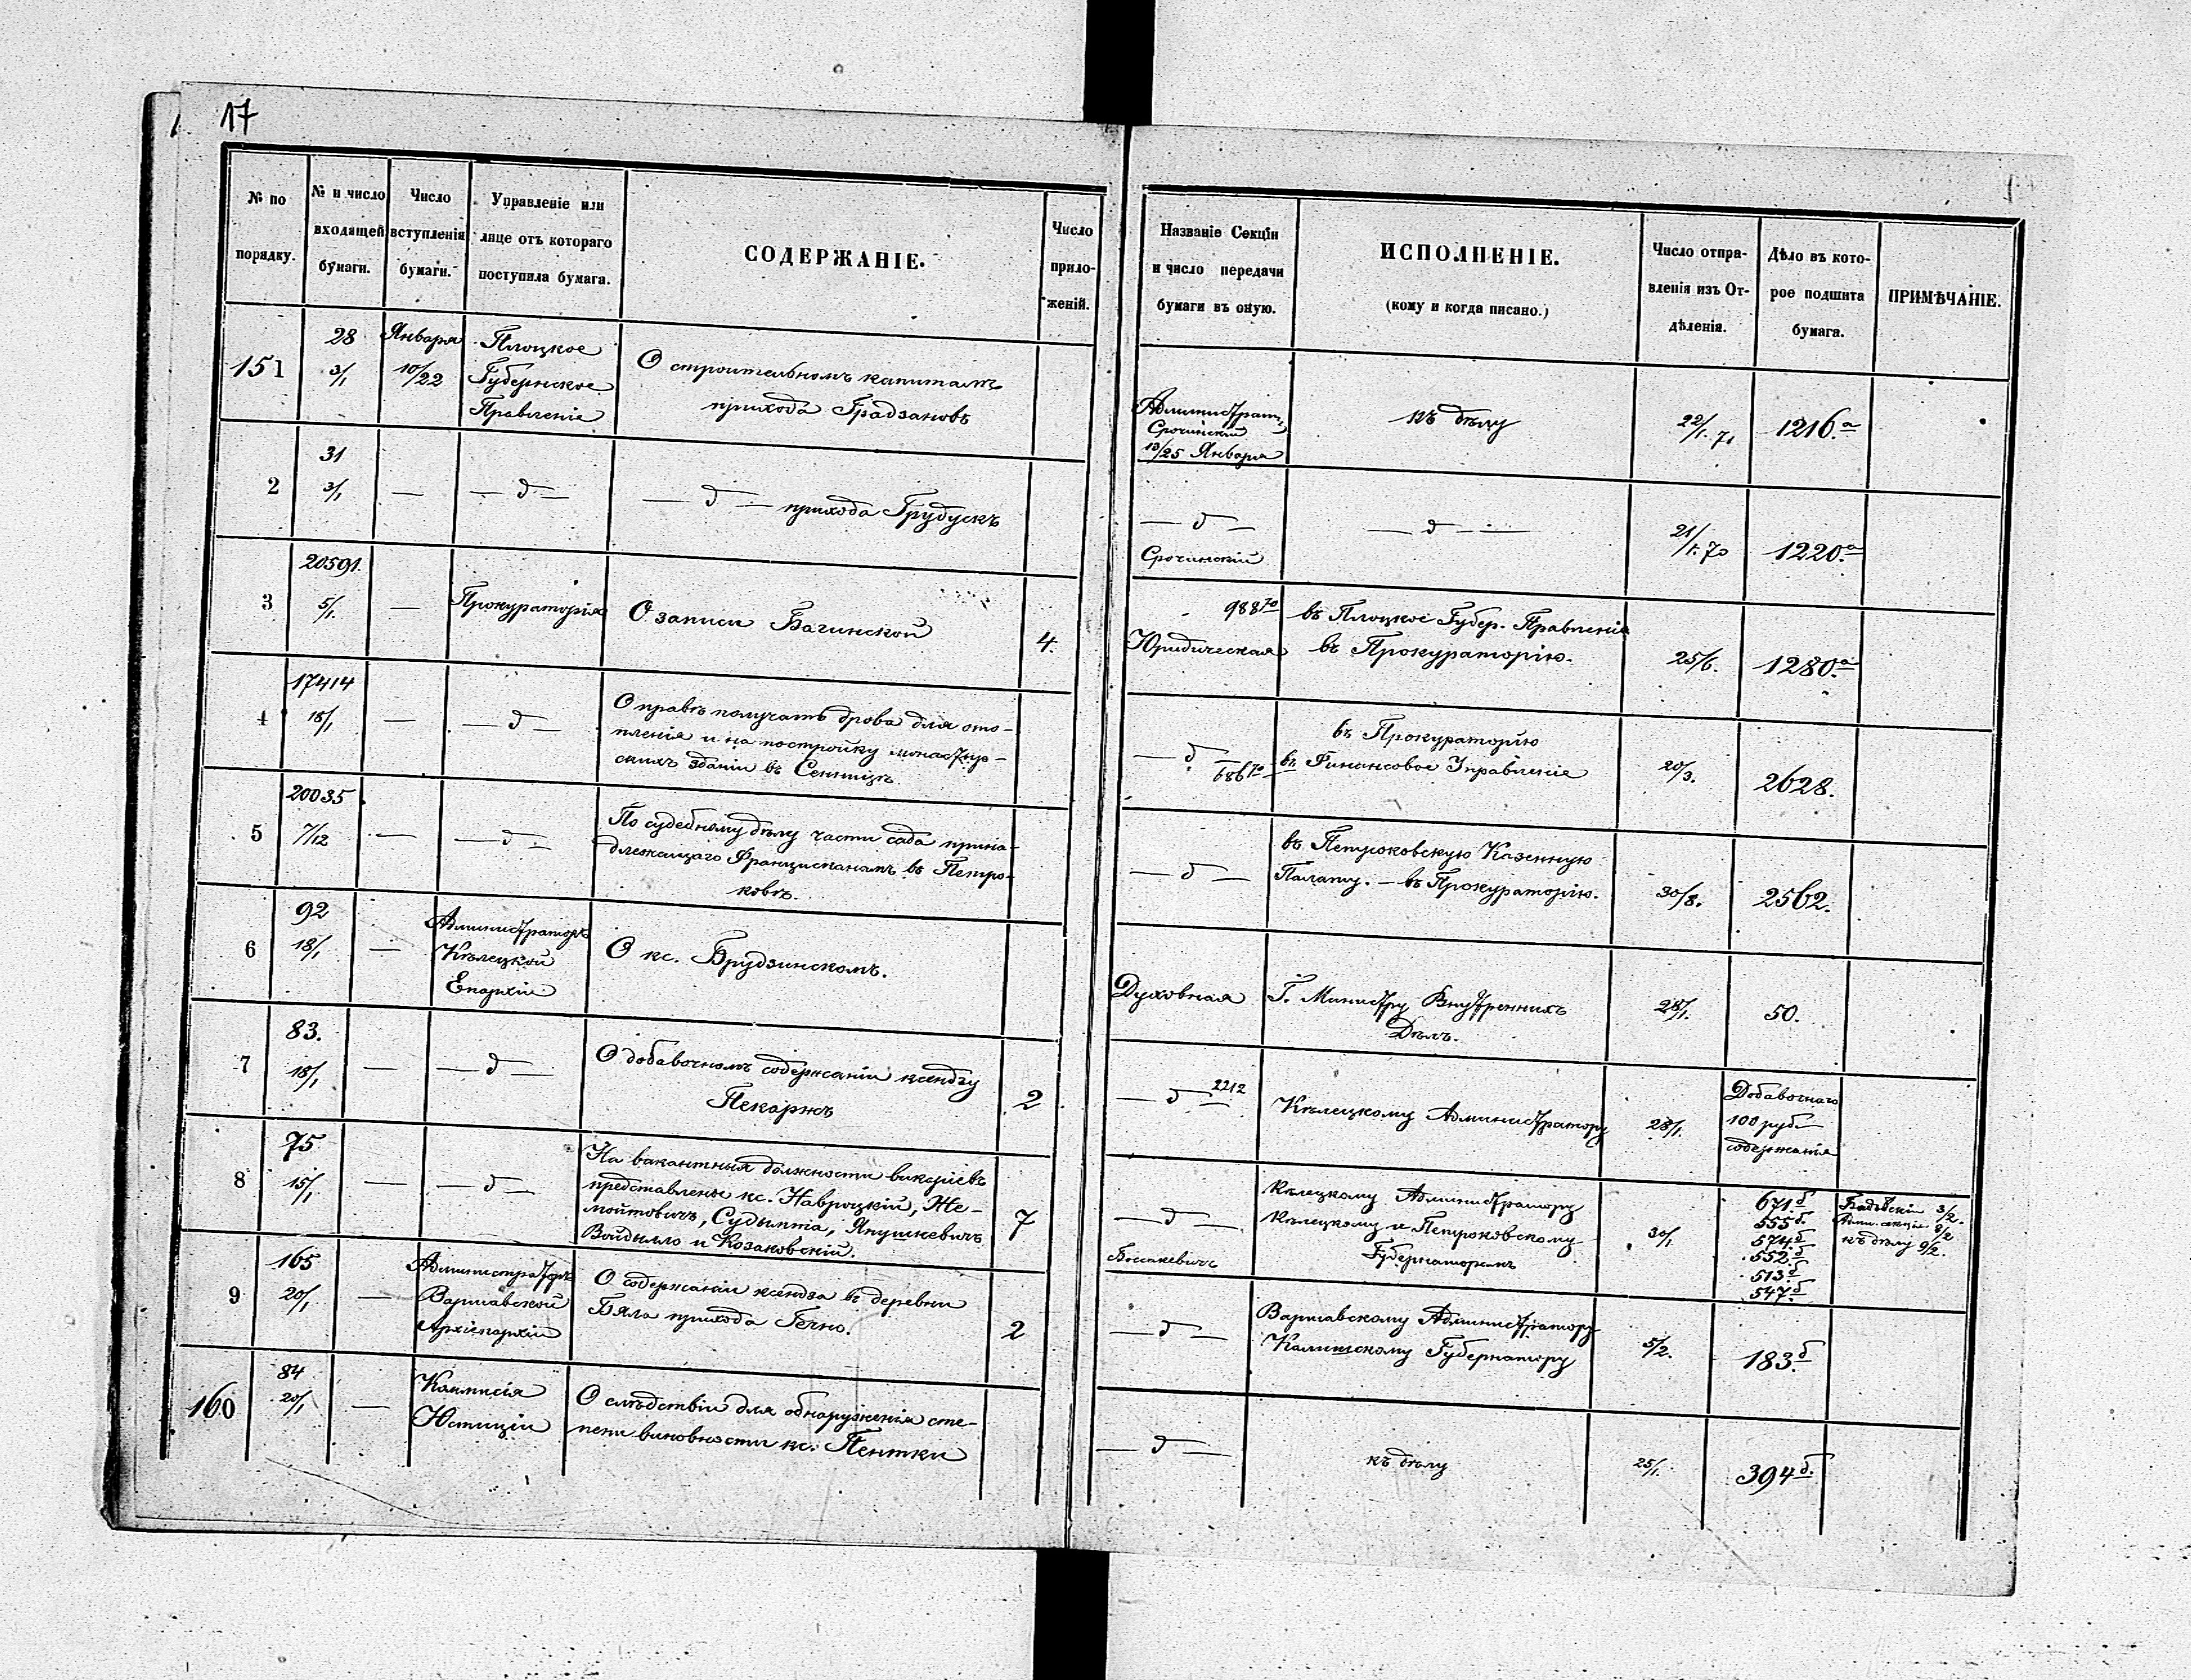 17
№ по порядку.
№ и число входящей бумаги.
Число вступленія бумаги.
Управленіе или лице отъ котораго поступила бумага.
СОДЕРЖАНІЕ.
Число приложеній.
Названіе Секціи и число передачи бумаги въ оную.
ИСПОЛНЕНІЕ.
(кому и когда писано.)
Число отправленія изъ Отдѣленія.
Дѣло въ которое подшита бумага.
ПРИМѢЧАНІЕ.
151
28
3/1
Января
10/22
Плоцкое
Губернское
Правленіе
О строительномъ капиталѣ
прихода Градзановъ
Срочинскій
13/25 Января
къ дѣлу
22/1. 71
1216.а
2
31
3/1
—
— д —
— д — прихода Грудускъ
— д —
Срочинскій
— д —
21/1. 70
1220.а
3
20591.
5/1.
—
Прокураторія
О записи Багинской
4.
988 70
Юридическая
въ Плоцкое Губер. Правленіе
въ Прокураторію.
25/6.
1280.а
4
17414
18/1
—
— д —
О правѣ получать дрова для ото-
пленія и на постройку монастыр-
скихъ зданій въ Сенницѣ.
— д —
686 70
въ Прокураторію
въ Финансовое Управленіе
20/3.
2628.
5
20035
7/12
—
— д —
По судебному дѣлу части сада прина-
длежащаго Францисканамъ въ Петро-
ковѣ.
— д —
въ Петроковскую Казенную
Палату. — въ Прокураторію.
30/8.
2562.
6
92
18/1
—
Администраторъ
Кѣлецкой
Епархіи
О кс. Брудзинскомъ.
Духовная
Г. Министру Внутреннихъ
Дѣлъ.
28/1.
50.
7
83.
18/1
—
— д —
О добавочномъ содержаніи ксендзу
Пекаржъ
2
— д —
2212
Кѣлецкому Администратору
28/1.
Добавочнаго
100 руб
содержанія
8
75
15/1
—
— д —
На вакантныя должности викаріевъ
представлены кс. Навроцкій, Же-
мойтовичъ, Судымта, Янушкевичъ
Войдылло и Козаковскій.
7
— д —
Боссакевичъ
Кѣлецкому Администратору
Кѣлецкому и Петроковскому
Губернаторамъ
30/1
671.б
555б.
574.б
552.б
513.б
547.б
3/2.
Адми. секція 8/2
къ дѣлу 9/2.
9
165
20/1
—
Администраторъ
Варшавской
Архіепархіи
О содержаніи ксендза въ деревни
Бяла прихода Гечно.
2
— д —
Варшавскому Администратору
Калишскому Губернатору
5/2.
183.б
160
84
20/1
—
Коммисія
Юстиціи
О слѣдствіи для обнаруженія сте-
пени виновности кс. Пентки
— д —
къ дѣлу
25/1.
394б.